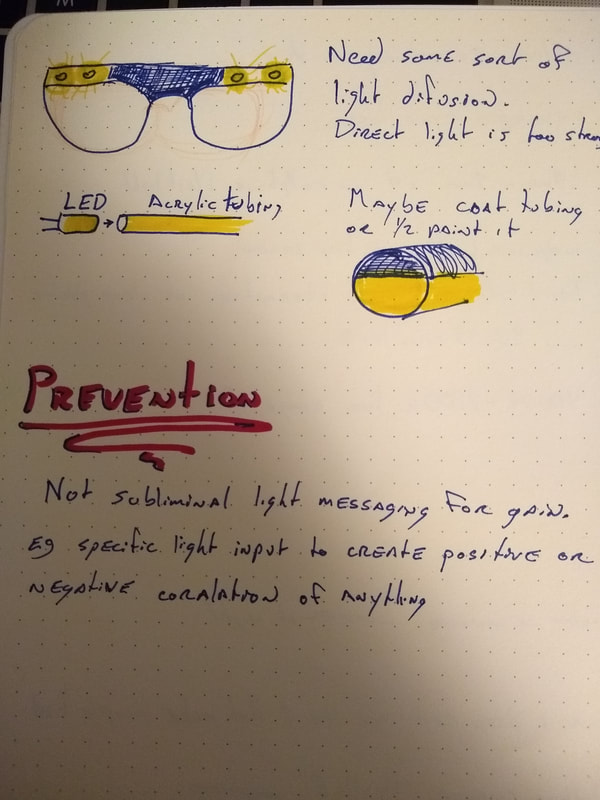 Need some sort of
light difusion.
Direct light is too
LED
Acrylic tubing
Maybe coat tubing
or 1/2 paint it
PREVENTION
Not subliminal light messaging for gain.
Eg specific light input to create positive or
negative coralation of anything